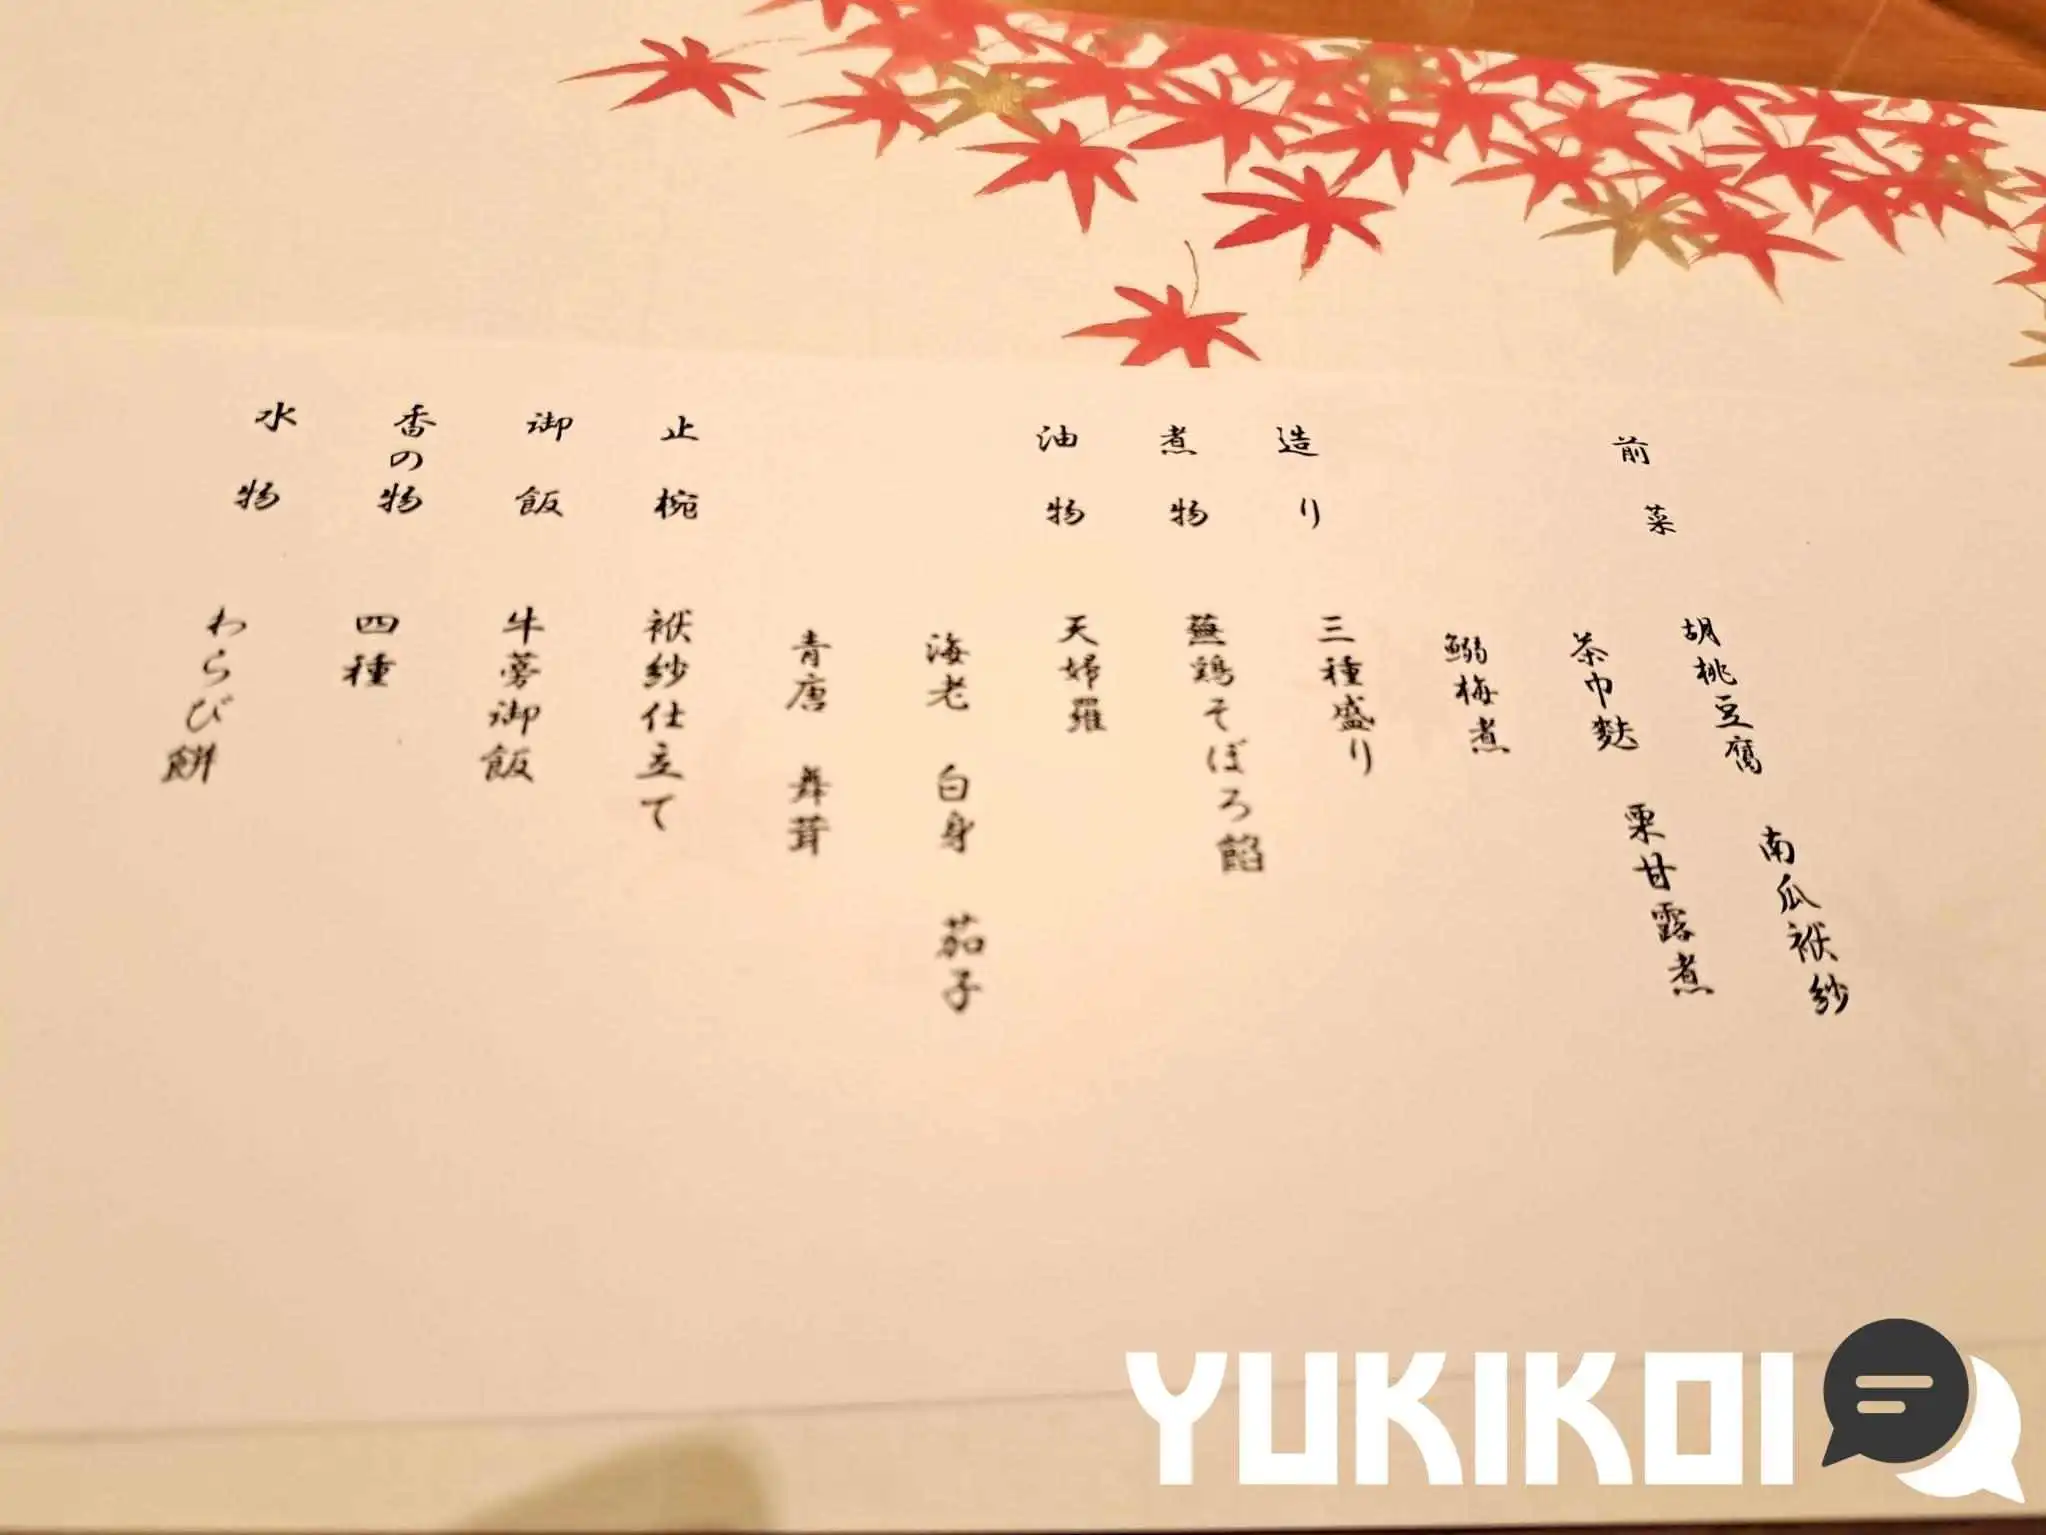 前菜 胡桃豆腐 南瓜袱紗
茶巾麩 栗甘露煮
鰯梅煮
造り 三種盛り
煮物 蕪鶏そぼろ餡
油物 天婦羅
海老 白身 茄子
青唐 舞茸
止椀 袱紗仕立て
御飯 牛蒡御飯
香の物 四種
水物 わらび餅
YUKIKOI